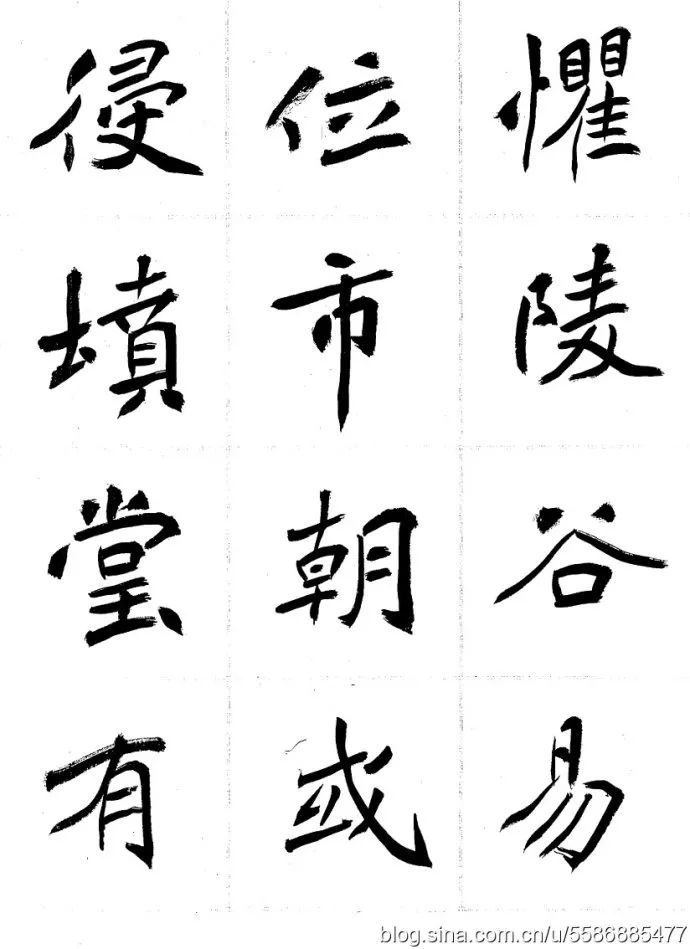 懼陵谷易
位市朝或
侵墳堂有
blog.sina.com.cn/u/5586885477